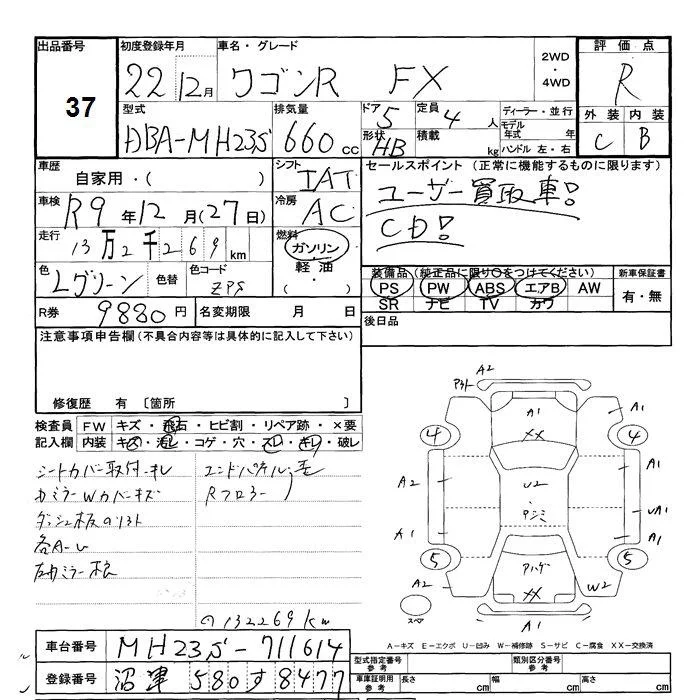 出品番号
37
初度登録年月
22 12月
車名・グレード
ワゴンR FX
2WD
・
4WD
評価点
R
外装 内装
C B
型式
DBA-MH23S
排気量
660 cc
ドア 5
形状 HB
定員 4 人
積載 kg
ディーラー・並行
モデル
年式 年
ハンドル 左・右
車歴
自家用・( )
シフト
IAT
車検
R9年12月(27日)
冷房
AC
走行
13万2千269 km
燃料
ガソリン
軽油
色
Lグリーン
色替
色コード
ZPS
R券 9880円
名変期限 月 日
セールスポイント (正常に機能するものに限ります)
ユーザー買取車!
CD!
装備品 (純正品に限り○をつけてください)
PS PW ABS エアB AW
SR ナビ TV カワ
新車保証書
有・無
後日品
注意事項申告欄(不具合内容等は具体的に記入して下さい)
修復歴 有 〔箇所 〕
検査員 FW キズ・飛石・ヒビ割・リペア跡・×要
記入欄 内装 キズ・汚れ・コゲ・穴・スレ・キレ・破レ
シートカバー取付キレ
エンドパネル
カミラーWカバーキズ
Rフロアー
ダッシュ板
132269km
車台番号 MH23S-711614
登録番号 沼津 580す8477
A2
A1
XX
4 4
A1
A1
A2
U2
UA1
A1
A1
5 5
A2
W2
XX
スペア
A1
A-キズ E-エクボ U-凹み W-補修跡 S-サビ C-腐食 XX-交換済
型式指定番号
参考
類別区分番号
参考
車庫証明用
参考
長さ cm 幅 cm 高さ cm